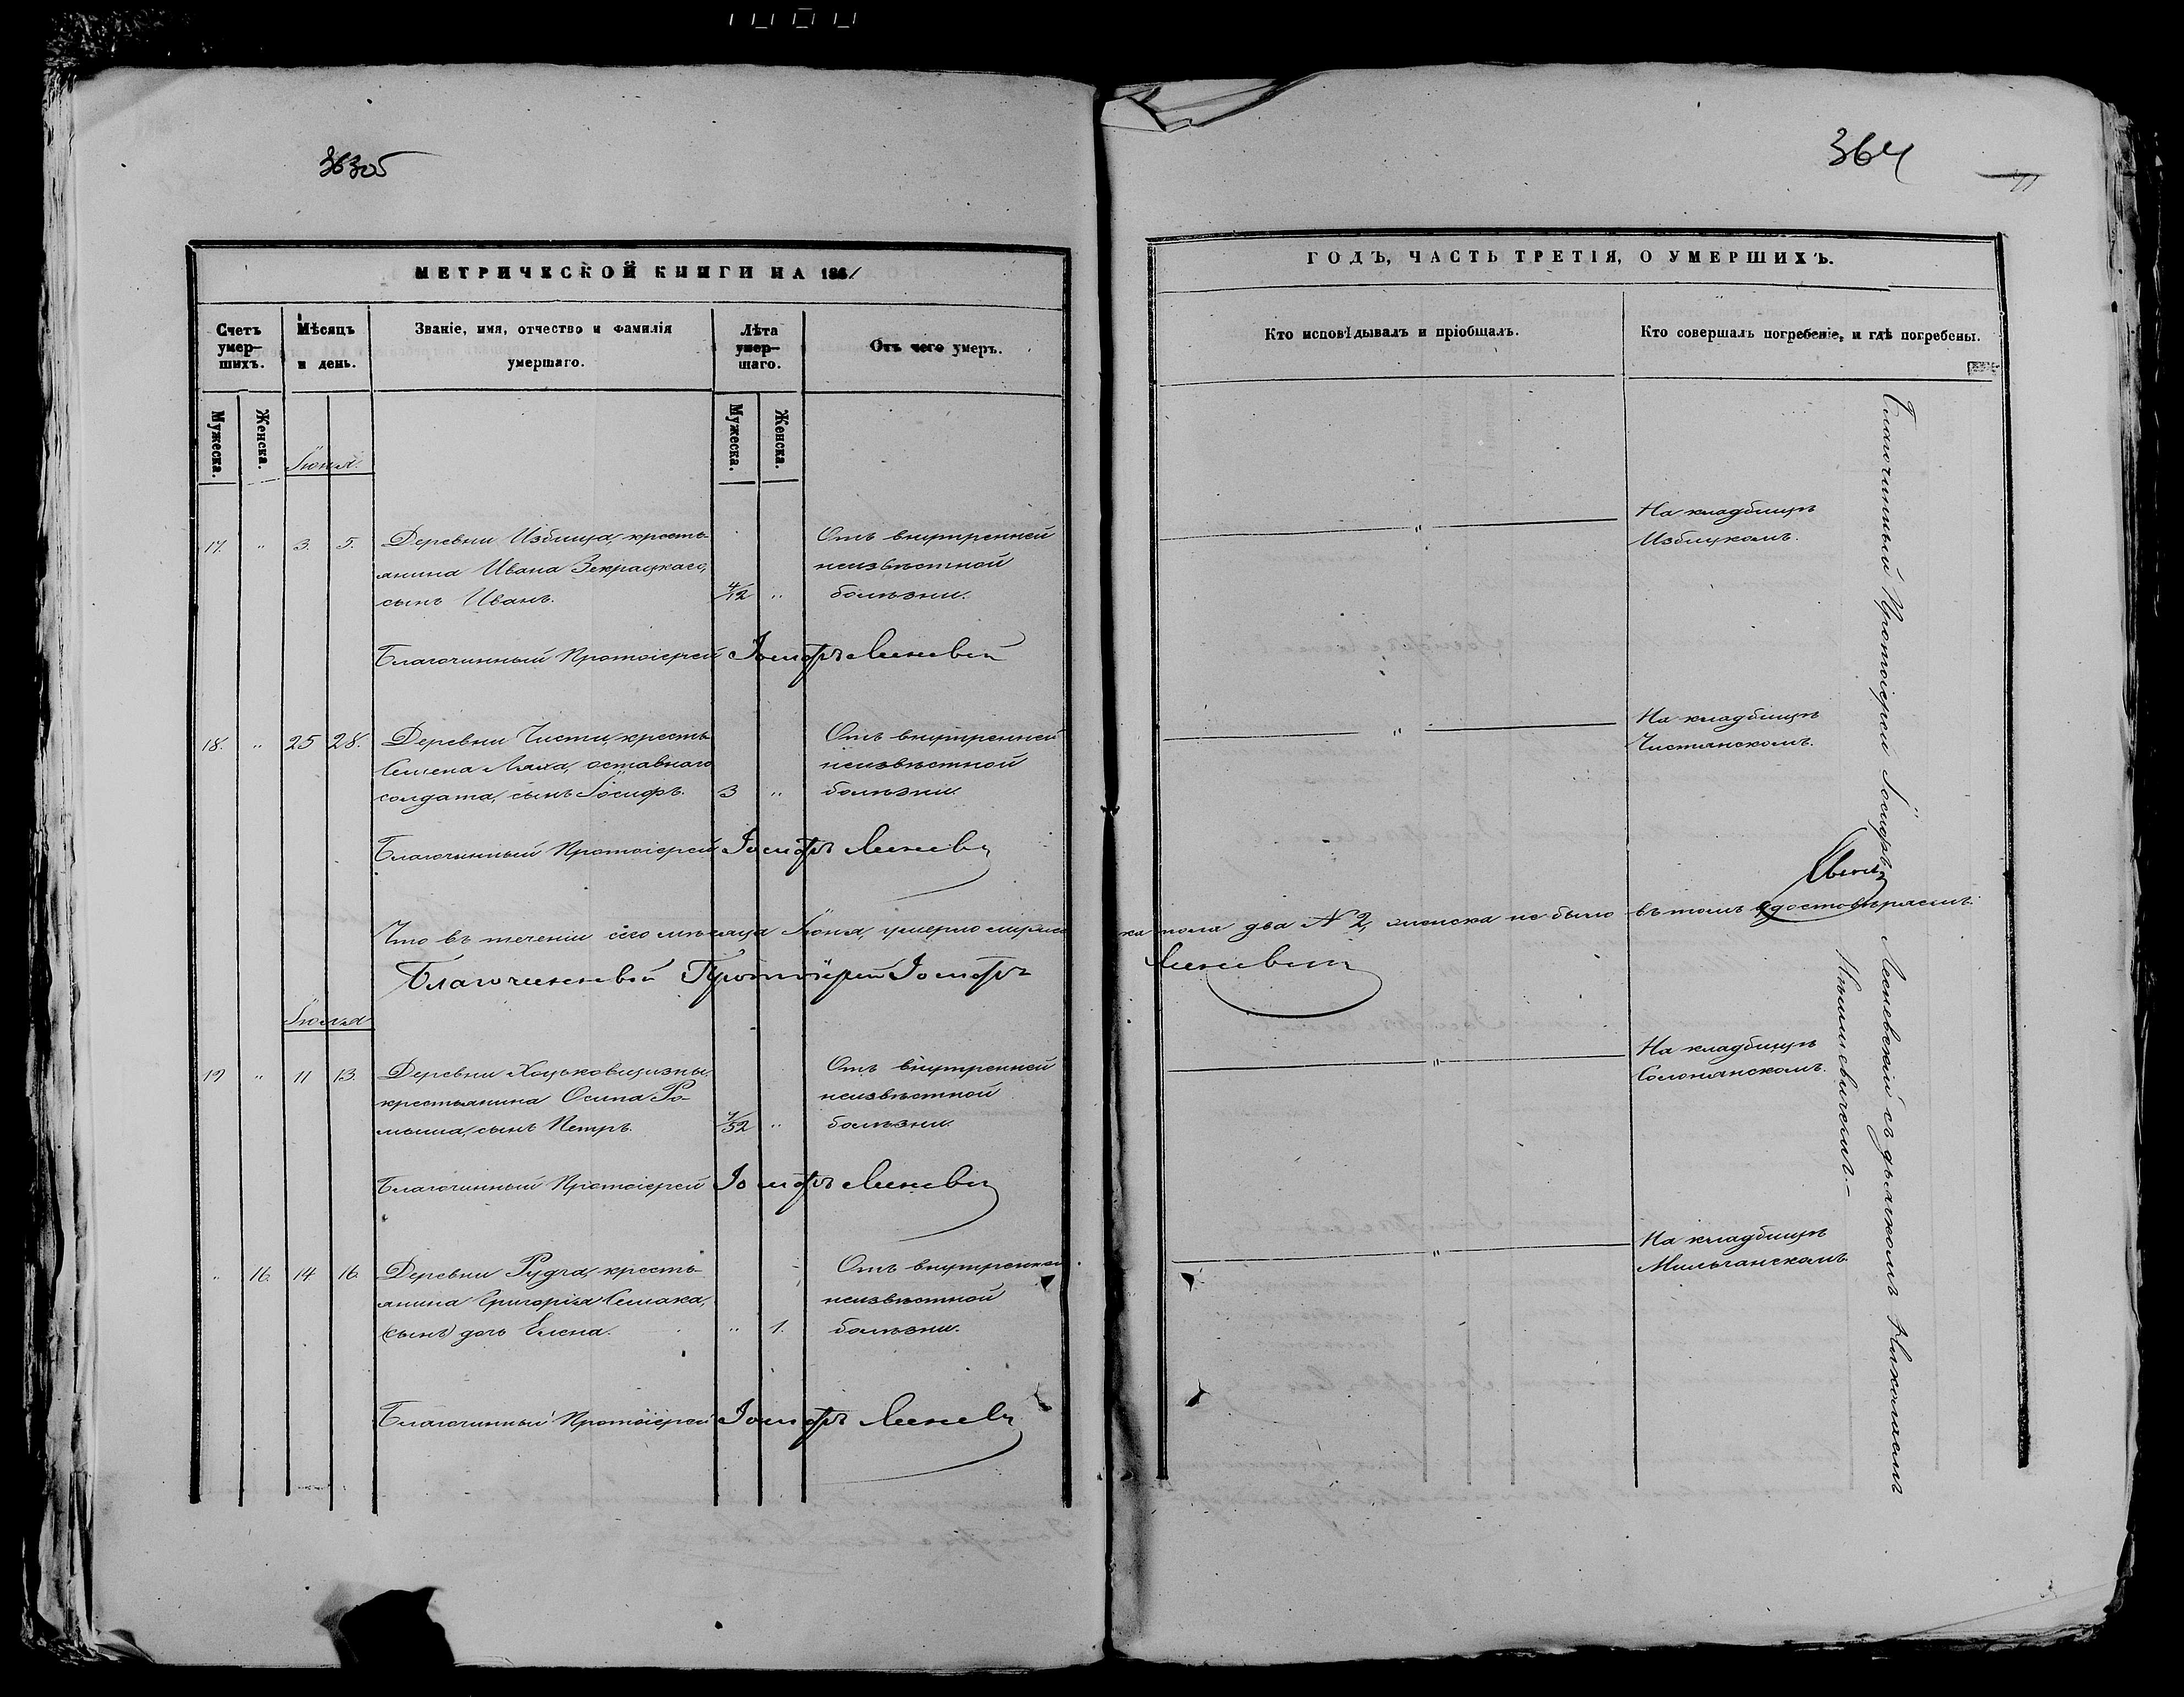 36305
МЕТРИЧЕСКОЙ КНИГИ НА 1861
Счетъ умер-шихъ.
Мѣсяцъ и день.
Званіе, имя, отчество и фамилія умершаго.
Лѣта умер-шаго.
Отъ чего умеръ.
Мужеска.
Женска.
Мужеска.
Женска.
Іюня.
17. " 3. 5. Деревни Избища, кресть- Отъ внутренней
янина Ивана Зекрацкаго, неизвѣстной
сынъ Иванъ. 4/12 " болѣзни.
Благочинный Протоіерей Іосифъ
18. " 25 28. Деревни Чисти, кресть- Отъ внутренней
Семена Ляха, оставнаго неизвѣстной
солдата, сынъ Іосифъ. 3 " болѣзни.
Благочинный Протоіерей Іосифъ
Что въ теченіи сего мѣсяца Іюня, умерло мужес
Благочинный Протоіерей Іосифъ
Іюля
19 " 11 13. Деревни Хоцьковщизны, Отъ внутренней
крестьянина Осипа Ро- неизвѣстной
мыша, сынъ Петръ. /52 " болѣзни.
Благочинный Протоіерей Іосифъ
" 16. 14 16. Деревни Рудча, кресть- Отъ внутренней
янина Григорія Семака, неизвѣстной
(сынъ) дочь Елена. " 1. болѣзни.
Благочинный Протоіерей Іосифъ
364
ГОДЪ, ЧАСТЬ ТРЕТІЯ, О УМЕРШИХЪ.
Кто исповѣдывалъ и пріобщалъ.
Кто совершалъ погребеніе, и гдѣ погребены.
" На кладбищѣ
Избицкомъ.
" На кладбищѣ
Чистянскомъ.
ка пола два № 2, женска не было въ томъ удостовѣряемъ.
" На кладбищѣ
Солонянскомъ.
" На кладбищѣ
Мильчанскомъ.
Благочинный Протоіерей Іосифъ Леневскій съ дьячкомъ Николаемъ